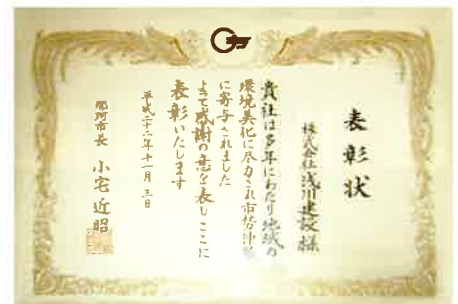 表彰状
株式会社浅川建設 様
貴社は多年にわたり地域の
環境美化に尽力され市勢
に寄与されました
よって感謝の意を表しここに
表彰いたします
平成二十二年十一月三日
那珂市長 小宅近昭